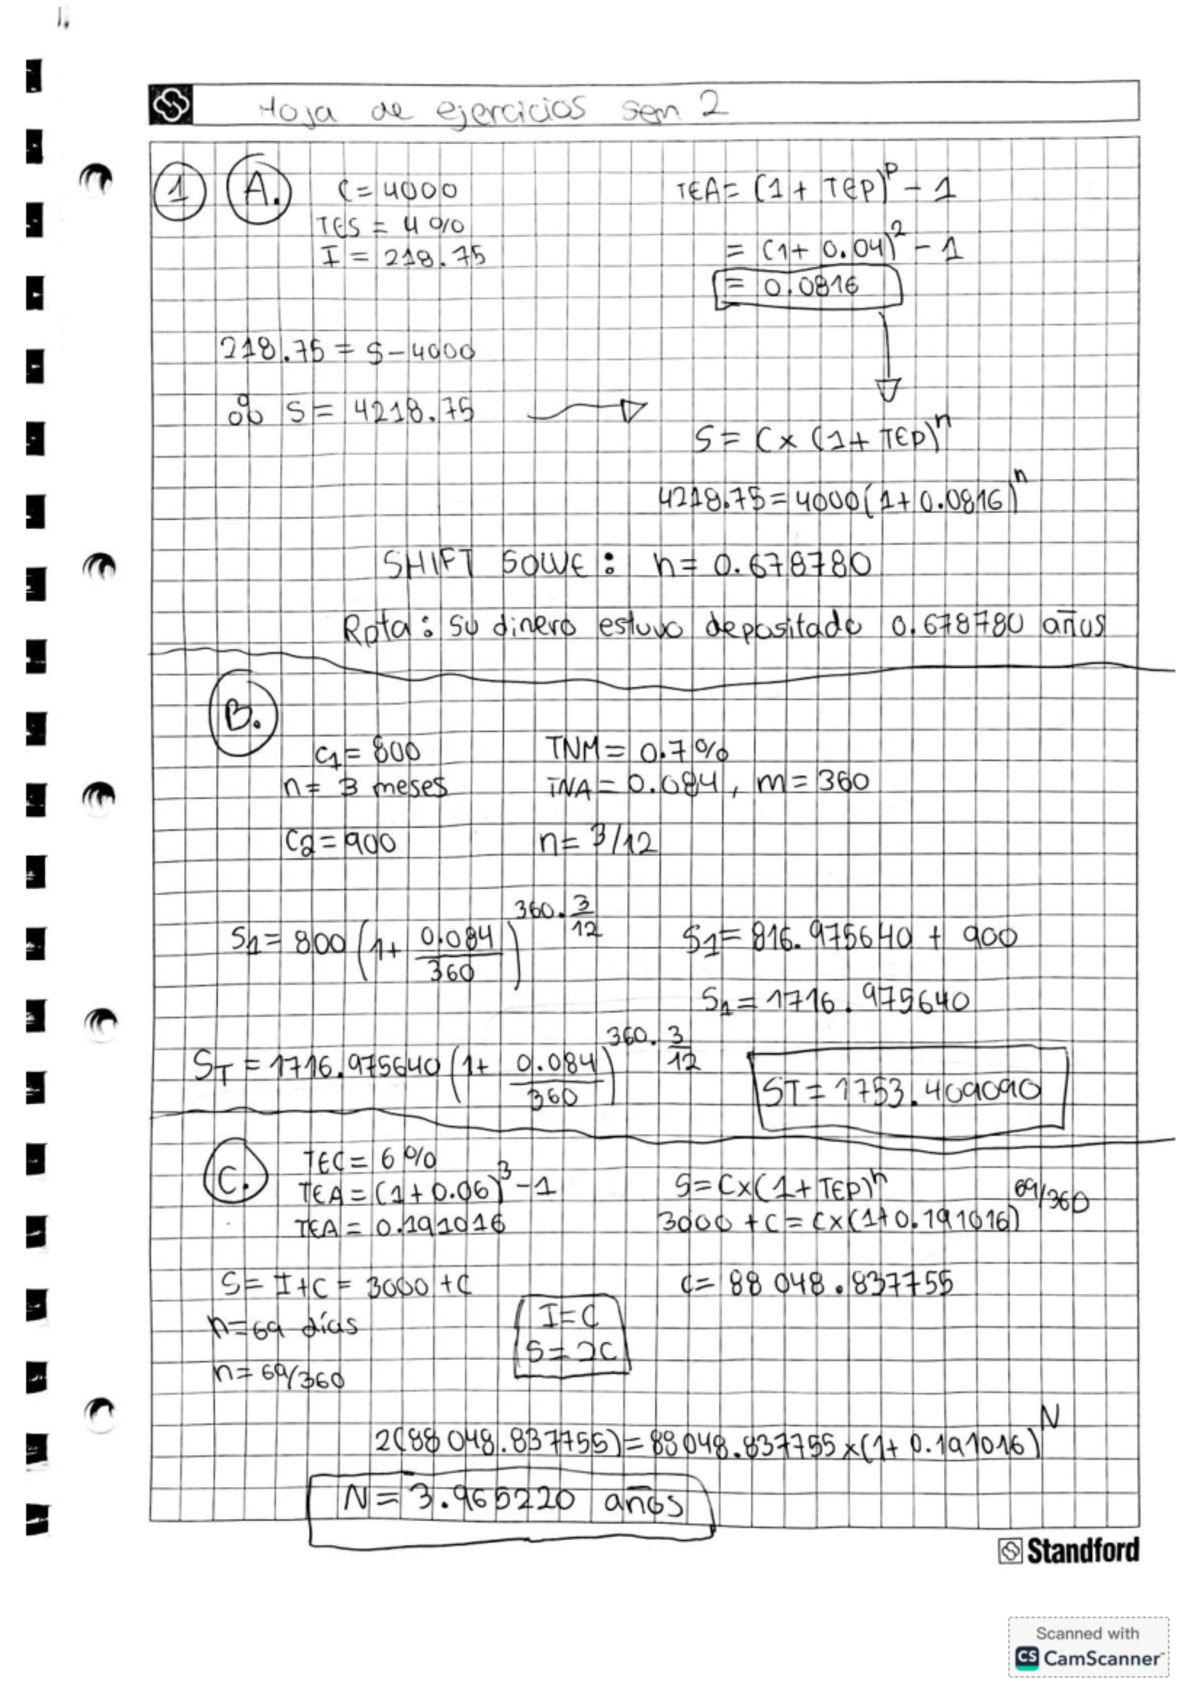 Hoja de ejercicios sem 2
1 A. C = 4000
TES = 4 %
I = 218.75
TEA = (1 + TEP)^P - 1
= (1 + 0.04)^2 - 1
= 0.0816
218.75 = S - 4000
S = 4218.75
S = C x (1 + TEP)^n
4218.75 = 4000 (1 + 0.0816)^n
SHIFT SOLVE : n = 0.678780
Rpta : su dinero estuvo depositado 0.678780 años
B.
C1 = 800
n = 3 meses
C2 = 900
TNM = 0.7 %
TNA = 0.084 , m = 360
n = 3/12
S1 = 800 (1 + 0.084/360)^360.3/12
S1 = 816.975640 + 900
S1 = 1716.975640
ST = 1716.975640 (1 + 0.084/360)^360.3/12
ST = 1753.409090
C. TEC = 6 %
TEA = (1 + 0.06)^3 - 1
TEA = 0.191016
S = C x (1 + TEP)^n
3000 + C = C x (1 + 0.191016)^69/360
S = I + C = 3000 + C
n = 69 días
n = 69/360
C = 88 048.837755
I = C
S = 2C
2(88 048.837755) = 88 048.837755 x (1 + 0.191016)^N
N = 3.965220 años
Standford
Scanned with
CS CamScanner